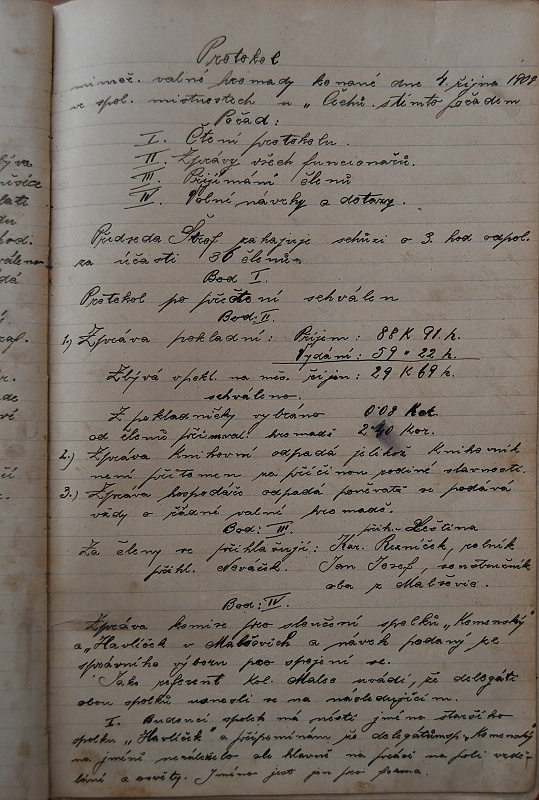 Protokol
mimoř. valné hromady konané dne 4. října 1908
ve spol. místnostech u „Čechů s tímto pořadem
Pořad:
I. Čtení protokolu.
II. Zprávy všech funcionářů.
III Přijímání členů
IV. Volní navrhy a dotazy.
Předseda Štrof zahajuje schůzi o 3. hod odpol.
za účasti 36 členů.
Bod I.
Protokol po přečtení schválen
Bod: II.
1.) Zpráva pokladní: Příjem: 88 K 91 h.
Vydání: 59 " 22 h.
Zbývá v pokl. na měs. říjen: 29 K 69 h.
schváleno.
Z pokladničky vybráno 0·08 Kor.
od členů při mimoř. hromadě 2·40 Kor.
2.) Zpráva knihovní odpadá jelikož knihovník
není přítomen za příčinou rodiné slavnosti.
3.) Zpráva hospodáře odpadá poněvadž se podává
vždy o řádné valné hromadě.
Bod: III přih. Leština
Za členy se přihlašují: Kar. Rezníček, rolník
přihl. Nováček. Jan Josef,
oba z Malšovic.
Bod: IV.
Zpráva komise pro sloučení spolků „Komenský"
a „Havlíček" v Malšovicích a návrh podaný ze
správního výboru pro spojení se.
Jako referent kol. Malse uvádí, že delegáti
obou spolků usnesli se na následujícím.
I. Budoucí spolek má nésti jméno staršího
spolku „Havlíček" a připomínám že delegátům „Komenský"
na jméně nezáleželo ale hlavně na práci na poli vzdě-
lání a osvěty. Jméno jest jen pro forma.